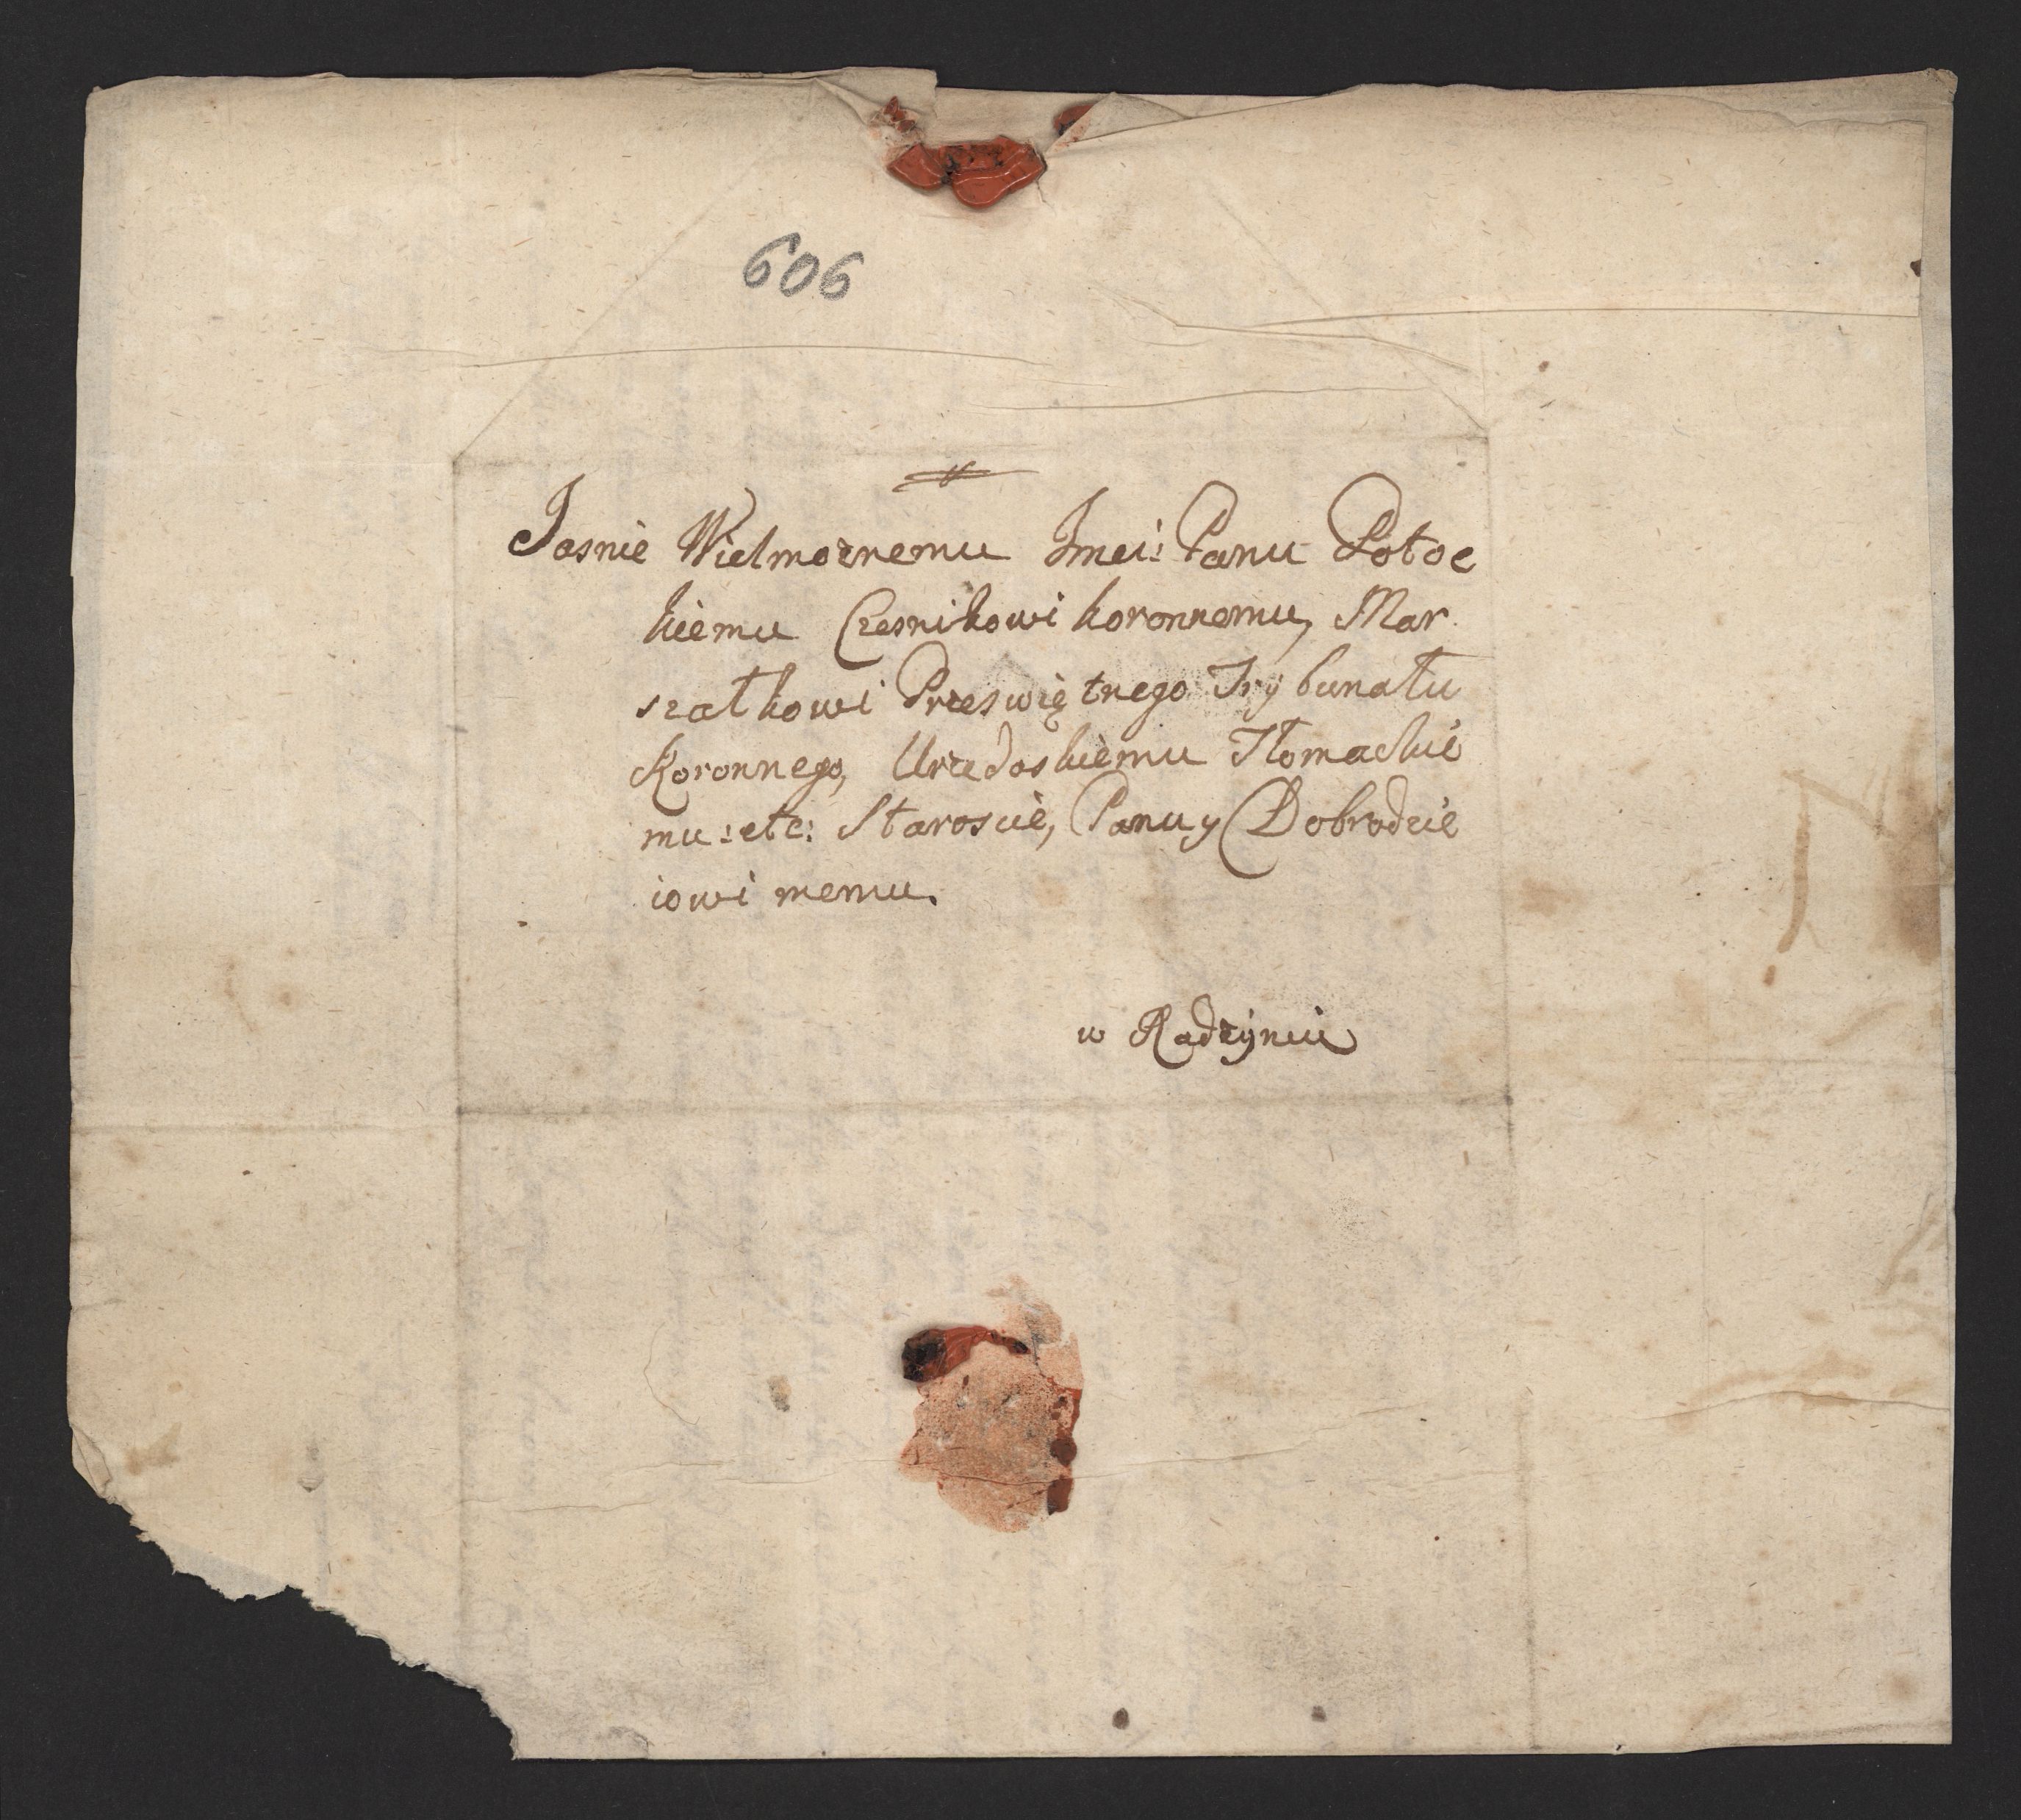 606
Jasnie Wielmoznemu Jmci: Panu Potoc
kiemu Czesnikowi koronnemu, Mar
szałkowi Przeświętnego Trybunału
Koronnego, Urzedoskiemu Tłomackie
mu: etc: Staroscie, Panu y Dobrodzie
iowi memu.
w Radzyniu